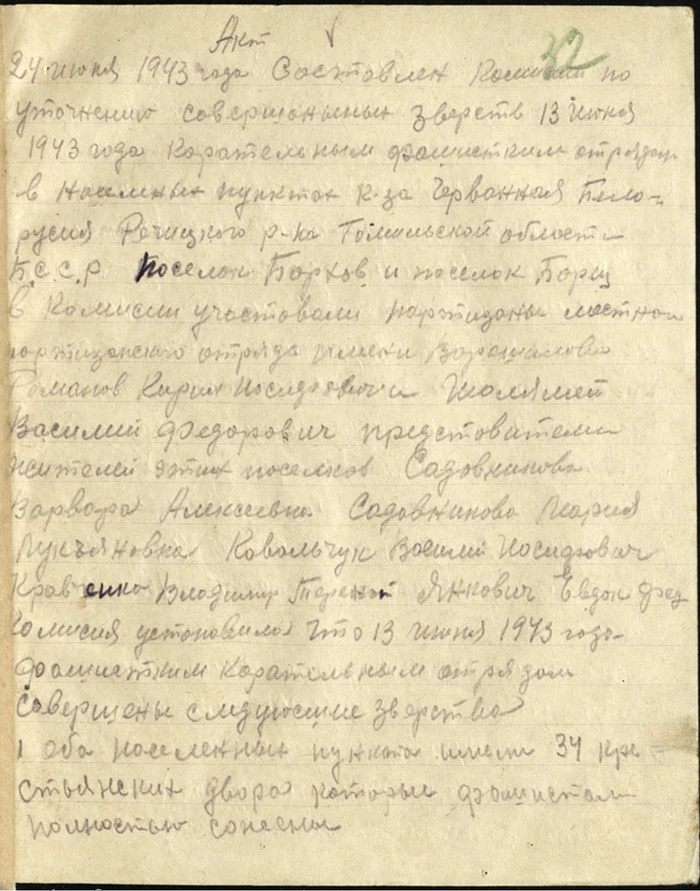 Акт
32
24 июня 1943 года Составлен Комисией по
уточнению совершонынных зверств 13 июня
1943 года Карательным фашистким отрядом
в населеных пунктах к-за Червонная Бело-
русия Речицкого р-на Гомильской области
Б.С.С.Р Поселок Борхов и поселок Борец
в Комисии участовали партизаны местного
партизанского отряда имени Ворошилова
Романов Кирил Иосифович
Василий Федорович представители
жителей этих поселков Садовникова
Варвара Алексеевна Садовникова Мария
Лукьяновна Ковольчук Василий Иосифович
Кравченко Владимир Терент Янкович Евдок Фед
Комисия установила что 13 июня 1943 года
фашистким карательным отрядом
Совершены следующие зверства
1 оба населенных пункта имели 34 кре-
стьянских двора которые фашистами
полностью сожены